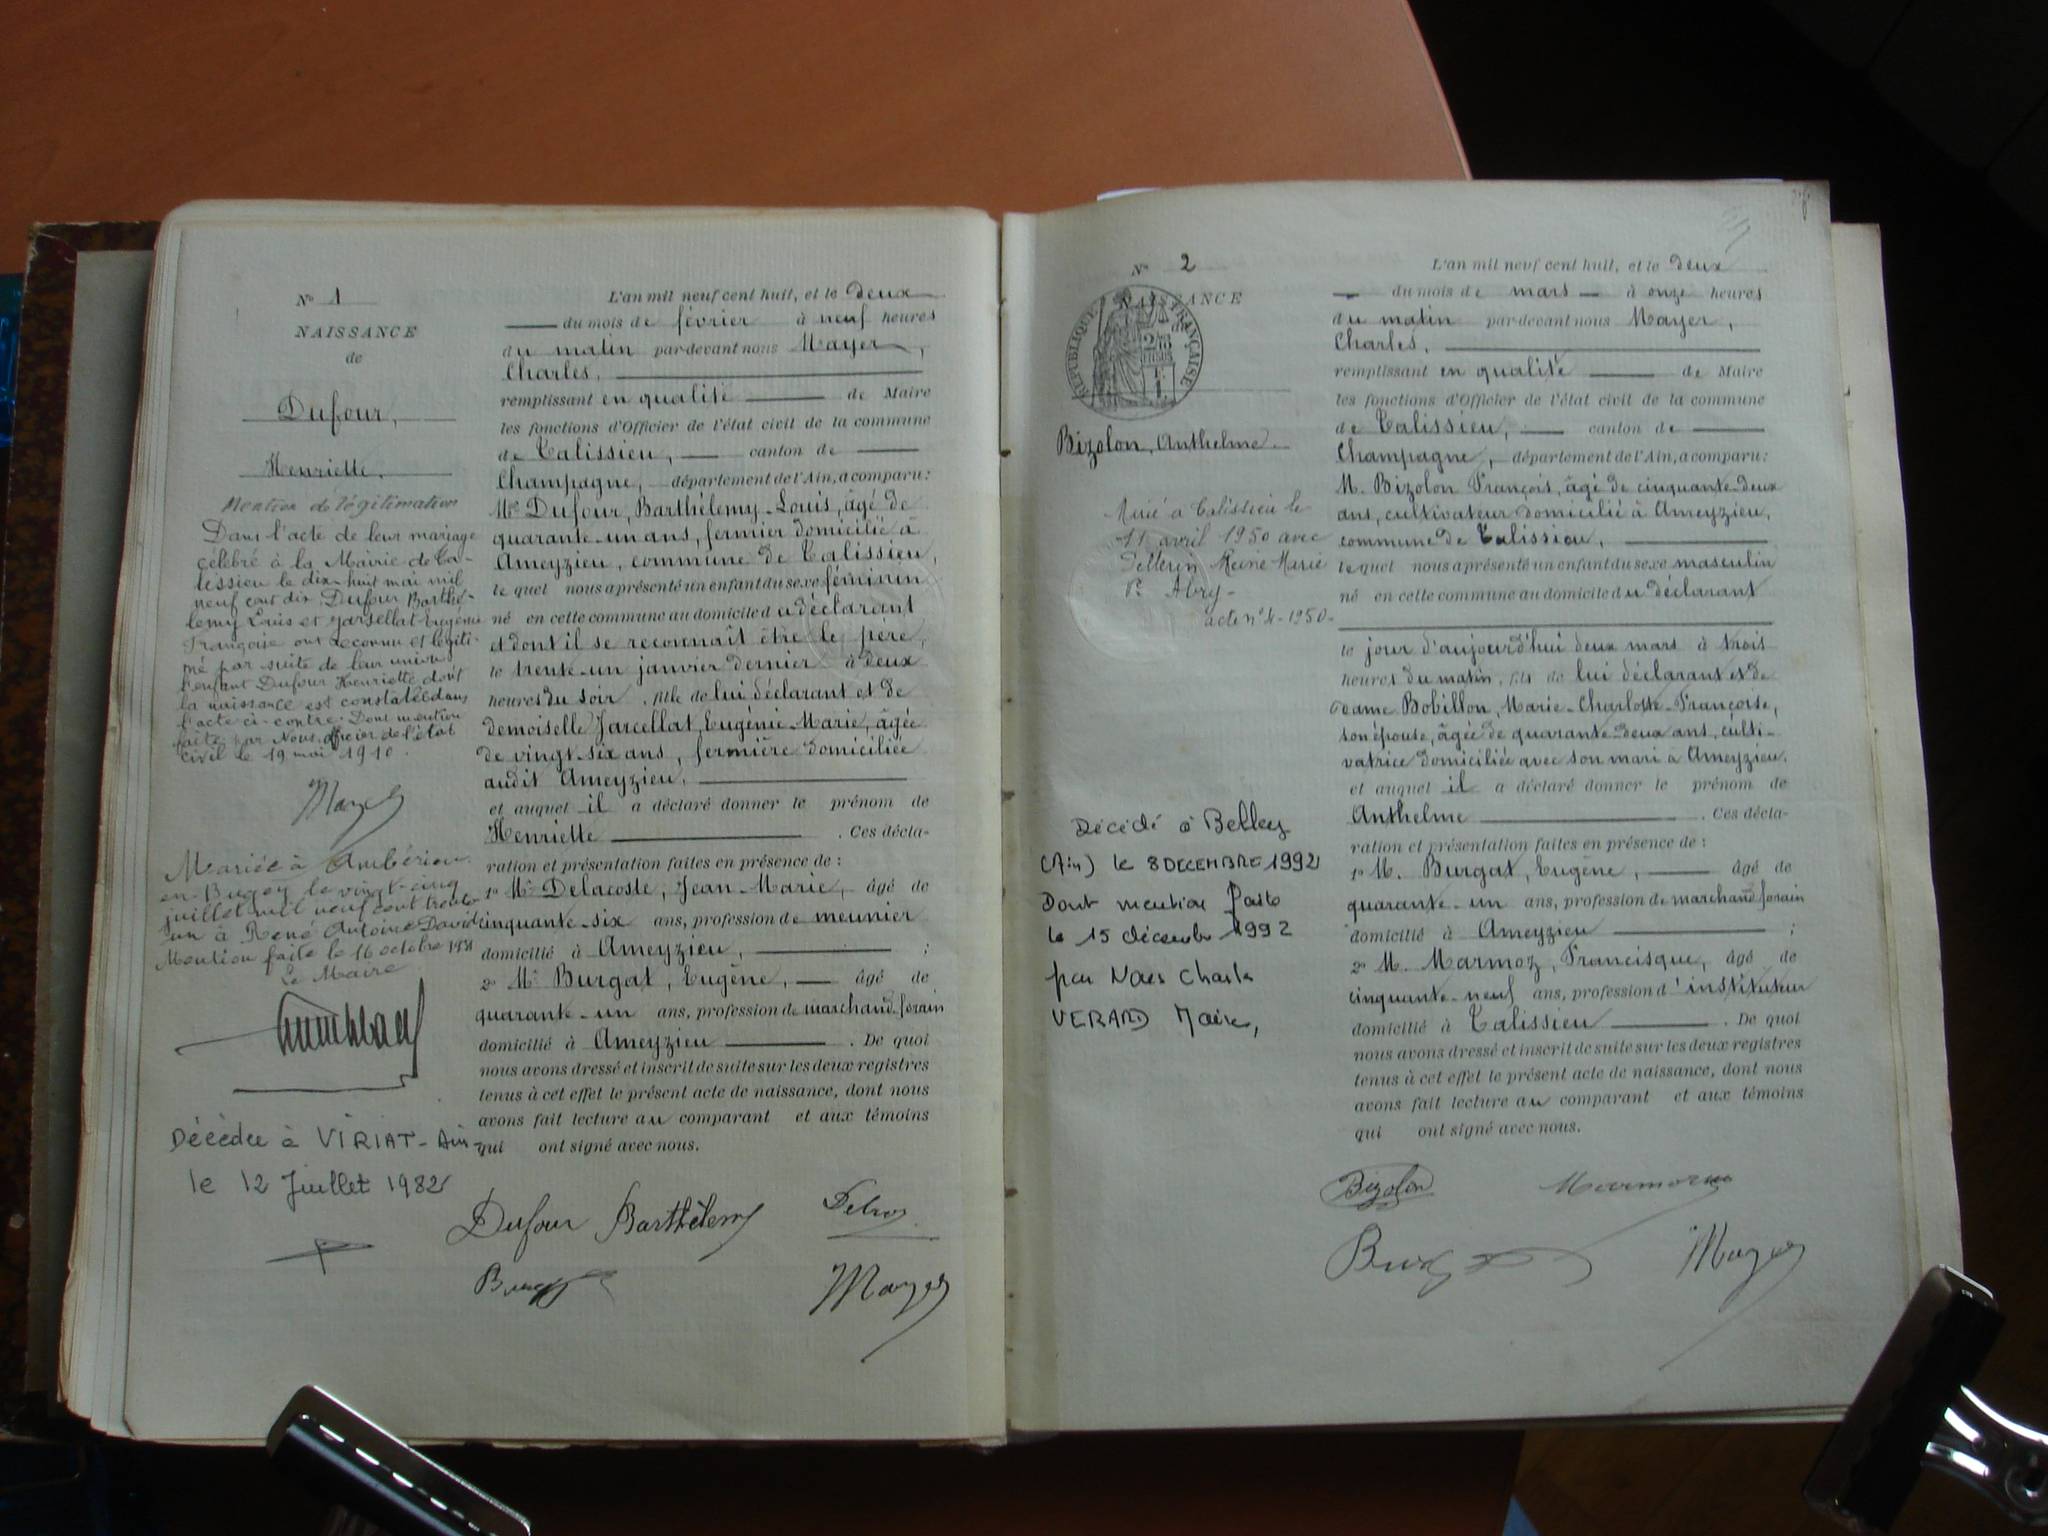 Nº 1
NAISSANCE
de
Dufour,
Henriette.
Mention de légitimation
Dans l'acte de leur mariage
célébré à la Mairie de Ta-
lissieu le dix-huit mai mil
neuf cent dix Dufour Barthé-
lemy Louis et Jarsellat Eugénie
Françoise ont reconnu et légiti-
mé par suite de leur union
l'enfant Dufour Henriette dont
la naissance est constatée dans
l'acte ci-contre. Dont mention
faite par Nous, officier de l'état
civil le 19 mai 1910.
Mayer
Mariée à Ambérieu
en Bugey le vingt-cinq
juillet mil neuf cent trente
un à René Antoine David
Mention faite le 16 octobre 1931
Le Maire
Décédée à VIRIAT - Ain -
le 12 Juillet 1982
L'an mil neuf cent huit, et le deux
du mois de février à neuf heures
du matin par-devant nous Mayer,
Charles,
remplissant en qualité de Maire
les fonctions d'Officier de l'état civil de la commune
de Talissieu, canton de
Champagne, département de l'Ain, a comparu:
Mr Dufour, Barthélemy-Louis, âgé de
quarante-un ans, fermier domicilié à
Ameyzieu, commune de Talissieu,
lequel nous a présenté un enfant du sexe féminin
né en cette commune au domicile du déclarant
et dont il se reconnaît être le père,
le trente-un janvier dernier à deux
heures du soir, fille de lui déclarant et de
demoiselle Jarcellat, Eugénie-Marie, âgée
de vingt-six ans, fermière domiciliée
audit Ameyzieu,
et auquel il a déclaré donner le prénom de
Henriette. Ces décla-
ration et présentation faites en présence de :
1º Mr Delacoste, Jean-Marie, âgé de
cinquante-six ans, profession de meunier
domicilié à Ameyzieu, ;
2º Mr Burgat, Eugène, âgé de
quarante-un ans, profession de marchand forain
domicilié à Ameyzieu. De quoi
nous avons dressé et inscrit de suite sur les deux registres
tenus à cet effet le présent acte de naissance, dont nous
avons fait lecture au comparant et aux témoins
qui ont signé avec nous.
Dufour Barthélemy
Mayer
Nº 2
NAISSANCE
de
RÉPUBLIQUE FRANÇAISE
Bizolon, Anthelme.
Marié à Talissieu le
11 avril 1950 avec
Pellerin Reine Marie
Ve Abry-
acte nº 4-1950-
Décédé à Belley
(Ain) le 8 DECEMBRE 1992
Dont mention faite
le 15 décembre 1992
par Nous Charles
VERARD Maire,
L'an mil neuf cent huit, et le deux
du mois de mars à onze heures
du matin par-devant nous Mayer,
Charles,
remplissant en qualité de Maire
les fonctions d'Officier de l'état civil de la commune
de Talissieu, canton de
Champagne, département de l'Ain, a comparu:
M. Bizolon François, âgé de cinquante-deux
ans, cultivateur domicilié à Ameyzieu,
commune de Talissieu,
lequel nous a présenté un enfant du sexe masculin
né en cette commune au domicile du déclarant
le jour d'aujourd'hui deux mars à trois
heures du matin, fils de lui déclarant et de
dame Bobillon, Marie-Charlotte-Françoise,
son épouse, âgée de quarante-deux ans, culti-
vatrice domiciliée avec son mari à Ameyzieu.
et auquel il a déclaré donner le prénom de
Anthelme. Ces décla-
ration et présentation faites en présence de :
1º M. Burgat, Eugène, âgé de
quarante-un ans, profession de marchand forain
domicilié à Ameyzieu ;
2º M. Marmoz, Francisque, âgé de
cinquante-neuf ans, profession d'instituteur
domicilié à Talissieu. De quoi
nous avons dressé et inscrit de suite sur les deux registres
tenus à cet effet le présent acte de naissance, dont nous
avons fait lecture au comparant et aux témoins
qui ont signé avec nous.
Bizolon
Mayer